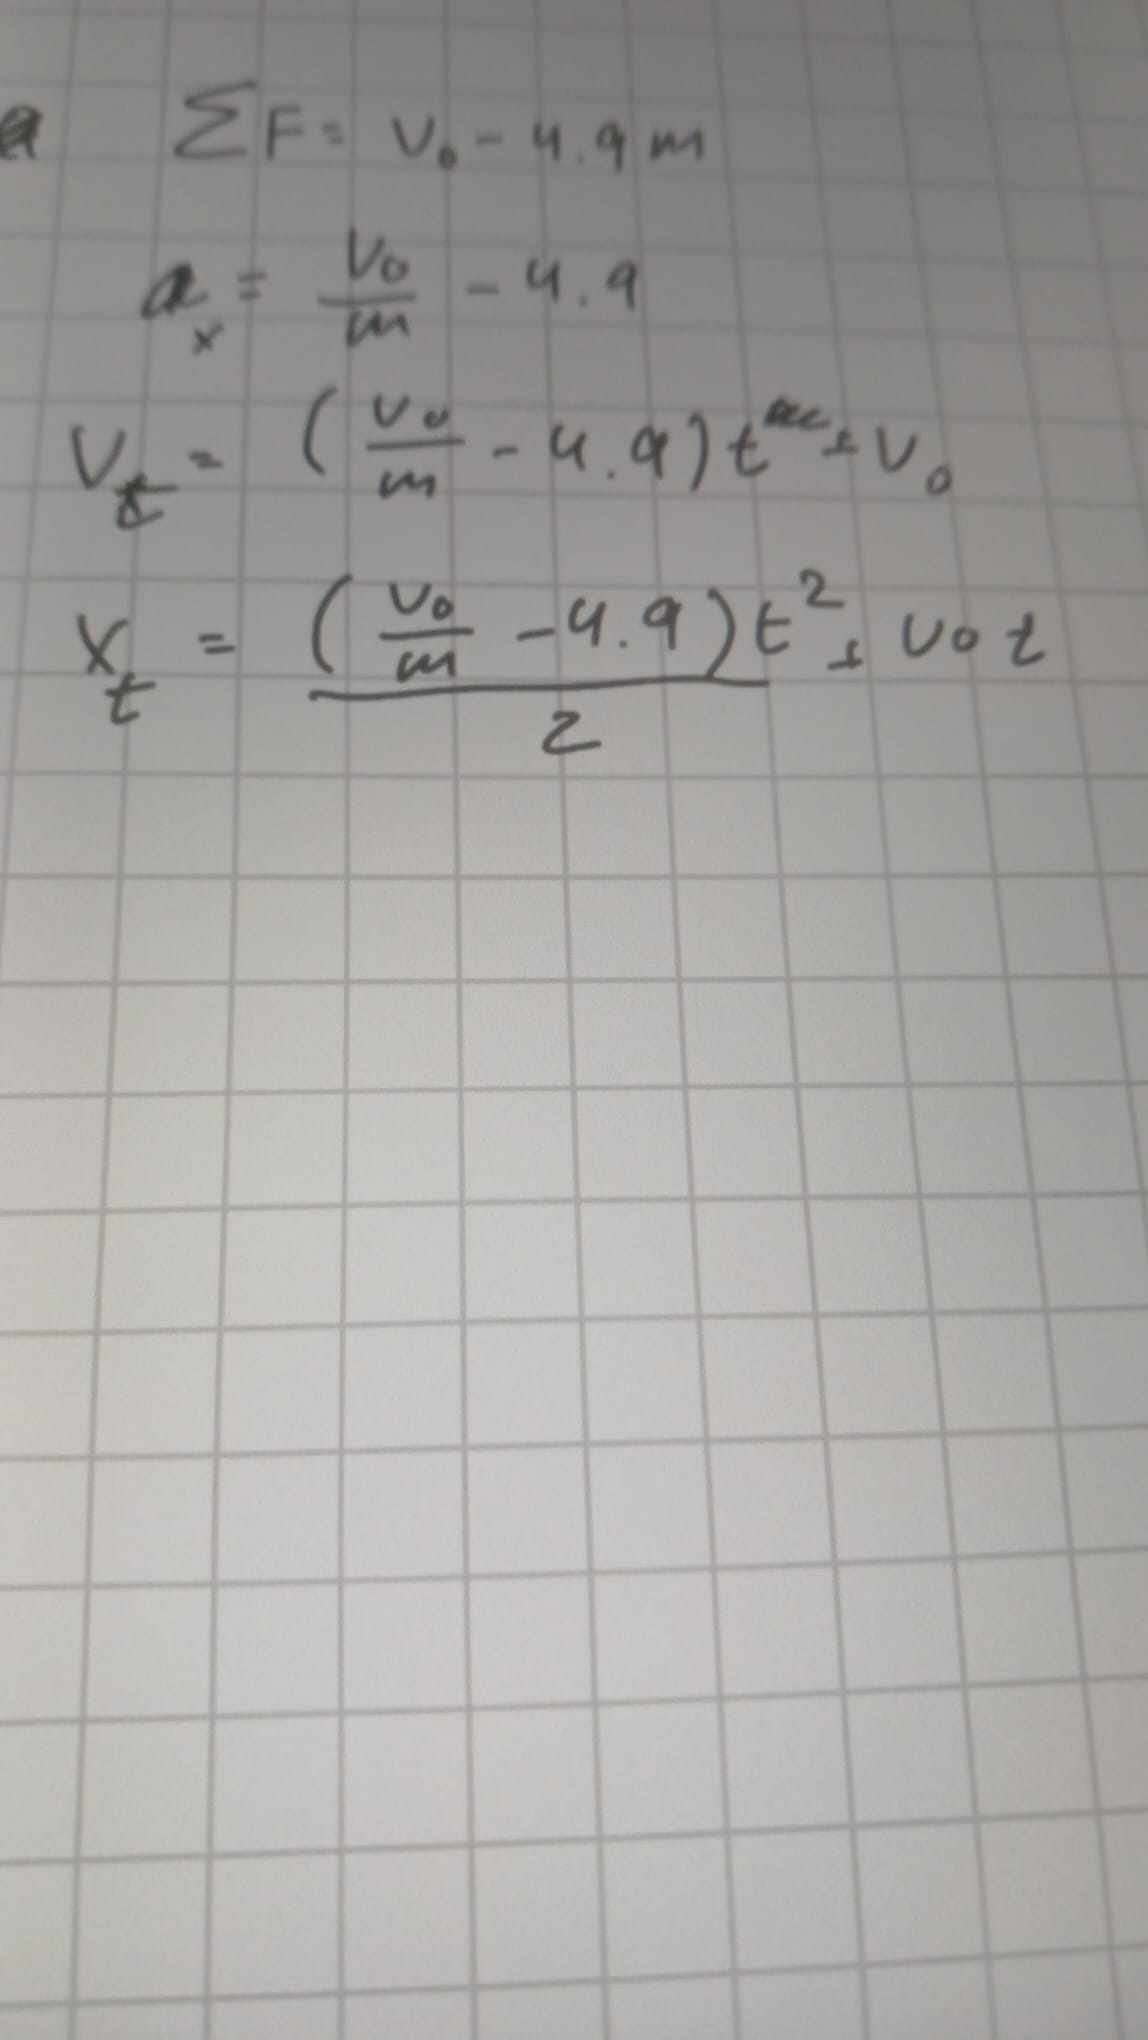 a ΣF = V₀ - 4.9 m
aₓ = V₀/m - 4.9
Vₜ = (V₀/m - 4.9) t + V₀
Xₜ = (V₀/m - 4.9) t² / 2 + V₀ t